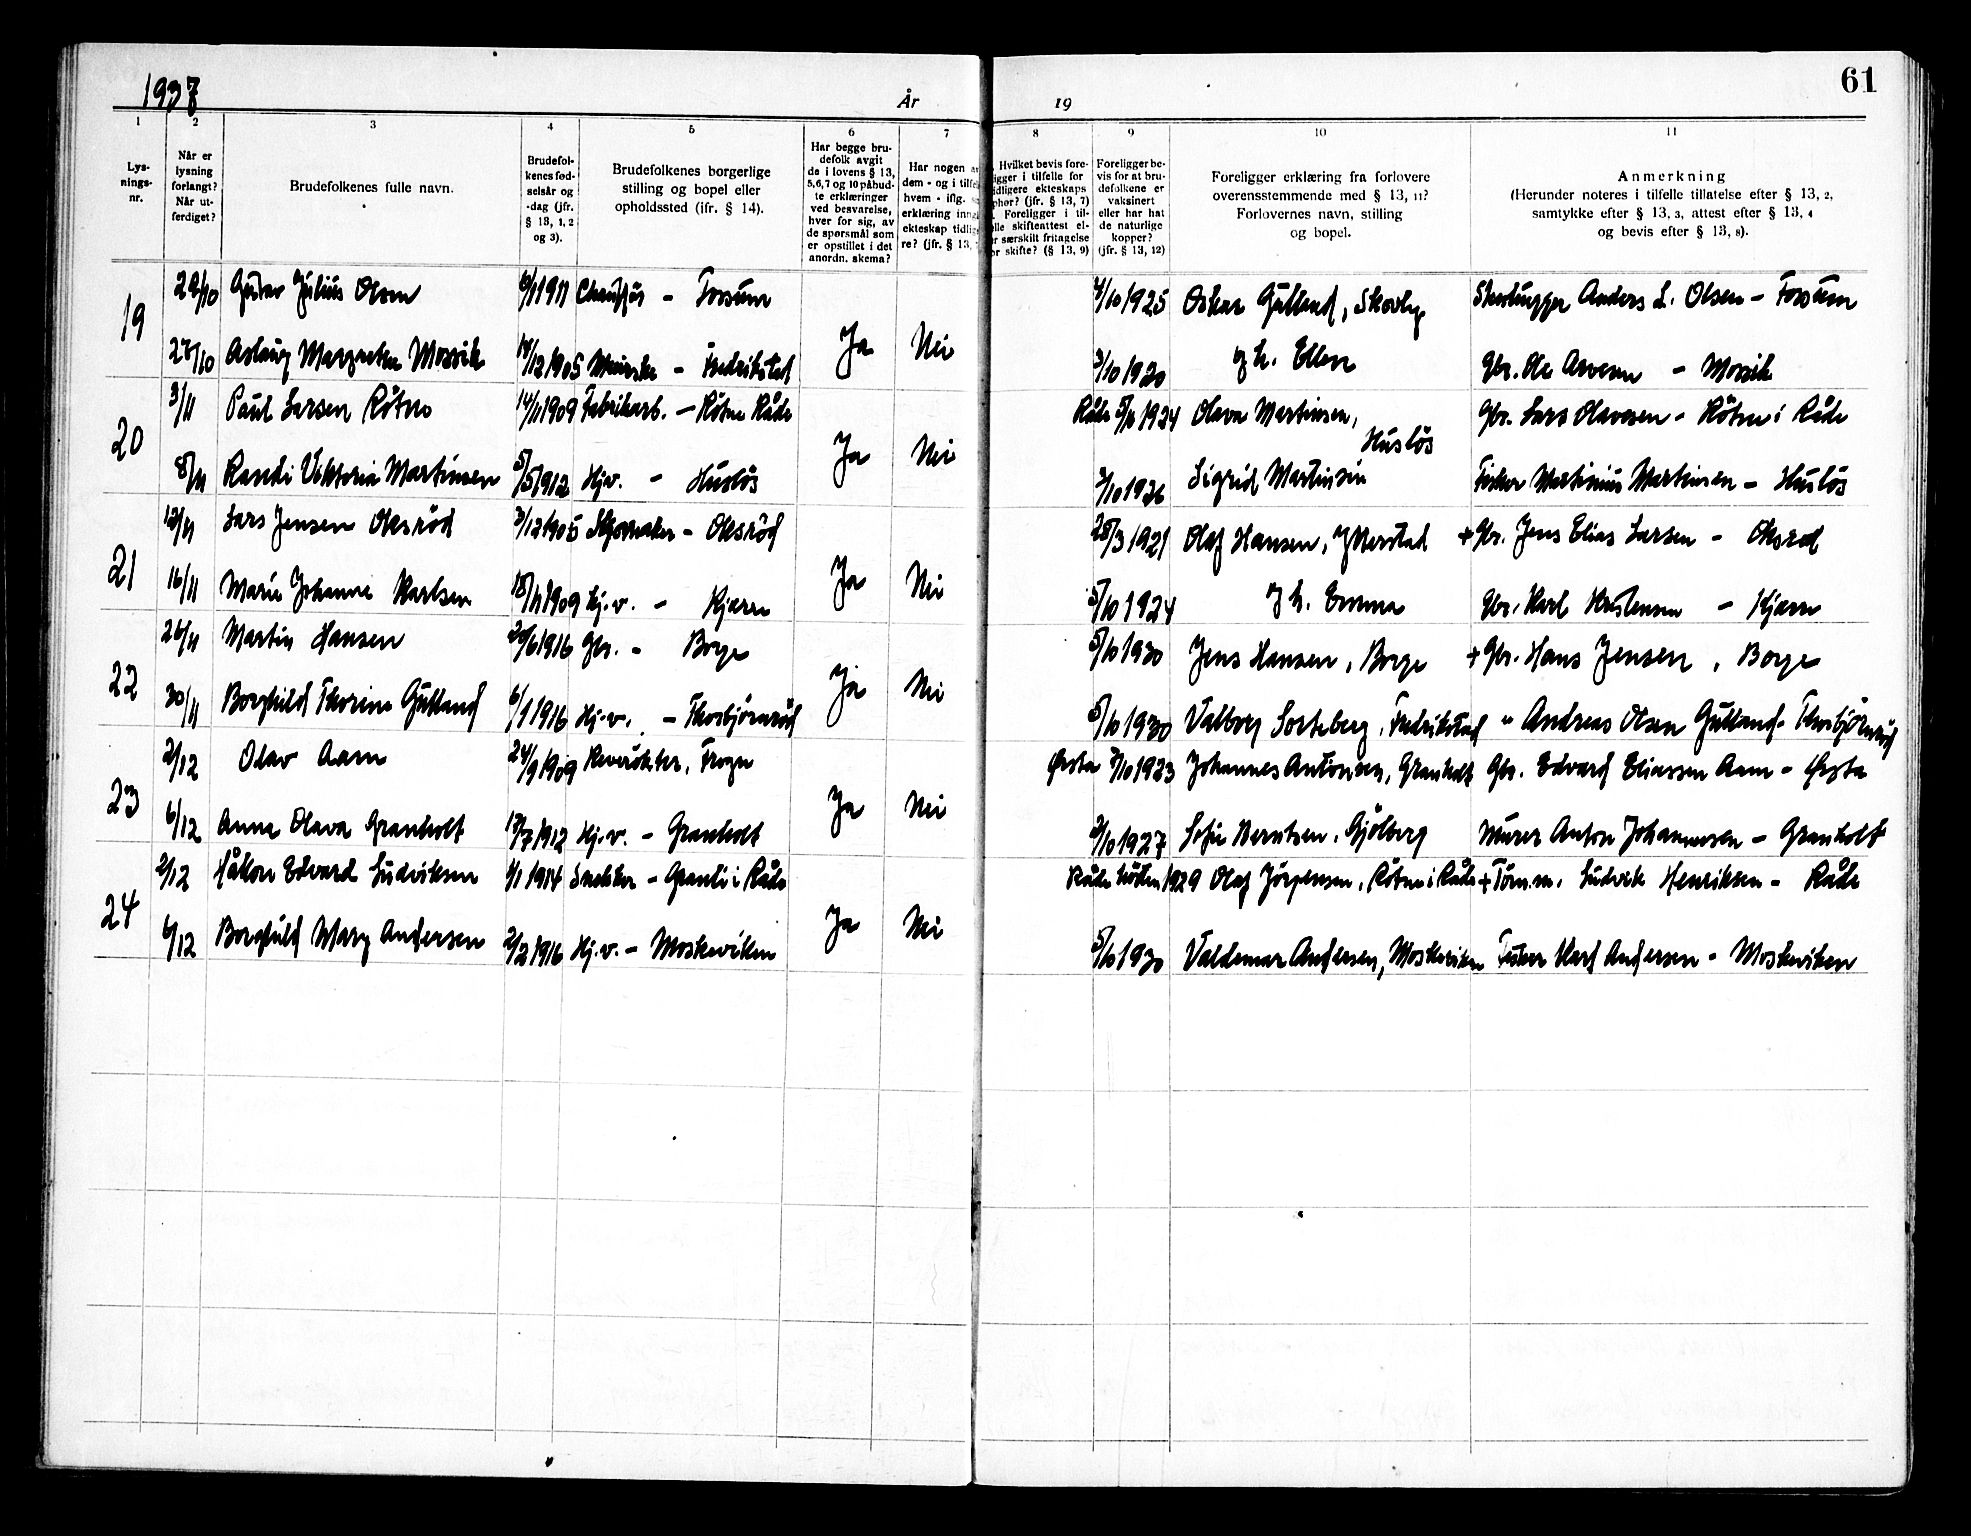 1937 År 19 61
1 2 3 4 5 6 7 8 9 10 11
Lys-
nings-
nr.
Når er
lysning
forlangt?
Når ut-
ferdiget?
Brudefolkenes fulle navn.
Brudefol-
kenes fød-
selsår og
-dag (jfr.
§ 13, 1, 2
og 3).
Brudefolkenes borgerlige
stilling og bopel eller
opholdssted (ifr. § 14).
Har begge bru-
defolk avgit
de i lovens § 13,
5,6,7 og 10 påbud-
te erklæringer
ved besvarelse,
hver for sig, av
de spørsmål som
er opstillet i det
anordn. skema?
Har nogen a
dem - og i tilfe
hvem - iflg.
erklæring inng
ekteskap tidlig
re? (jfr. § 13,
Hvilket bevis fore-
igger i tilfelle for
idligere ekteskaps
phør? (jfr. § 13, 7)
Foreligger i til-
elle skifteattest el-
r særskilt fritagelse
or skifte? (§ 13, 9)
Foreligger be-
vis for at bru-
defolkene er
vaksinert
eller har hat
de naturlige
kopper?
(jfr. § 13, 12)
Foreligger erklæring fra forlovere
overensstemmende med § 13, 11?
Forlovernes navn, stilling
og bopel.
Anmerkning
(Herunder noteres i tilfelle tillatelse efter § 13, 2,
samtykke efter § 13, 3, attest efter § 13, 4
og bevis efter § 13, 8).
19 Gustav Julius Olsen 6/1 1911 Chauffør - Fossum 4/10 1925 Oskar Gutland, Skovby Anders L. Olsen - Fossum
27/10 Aslaug Margrethe Mossik 14/12 1905 - Fredrikstad Ja Nei 3/10 1920 og h. Ellen Gbr. Ole - Mossik
20 3/11 Paul Larsen Rötne 14/11 1909 Fabrikarb. - Rötne Råde Råde 5/6 1924 Olava Martinsen, Huslös Gbr. Lars Olavesen - Rötne i Råde
8/11 Randi Viktoria Martinsen 5/5 1912 Hj.v. - Huslös Ja Nei 2/10 1926 Sigrid Martinsen Fisker Martinius Martinsen - Huslös
21 12/11 Lars Jensen Oksröd 3/12 1905 Skomaker - Oksröd 28/3 1921 Olaf Hansen, + Gbr. Jens Elias Larsen - Oksröd
16/11 Marie Johanne Karlsen 18/11 1909 Hj.v. - Kjærre Ja Nei 5/10 1924 og h. Emma Gbr. Karl Kristensen - Kjærre
22 26/11 Martin Hansen 20/6 1916 Gbr. - Borge 5/10 1930 Jens Hansen, Borge + Gbr. Hans Jensen, Borge
30/11 Borghild Thorine Gutland 6/1 1916 Hj.v. - Thorbjörnröd Ja Nei 5/10 1930 Valborg Sorteberg, Fredrikstad " Andreas Olsen Gutland - Thorbjörnröd
23 2/12 Olav Aam 24/9 1909 Revrökter, Frogn Ørsta 7/10 1923 Johannes Antonsen, Granholt Gbr. Edvard Eliassen Aam - Ørsta
6/12 Anna Olava Granholt 17/7 1912 Hj.v. - Granholt Ja Nei 3/10 1927 Sofie Berntsen, Gjölberg Murer Anton Johannesen - Granholt
24 2/12 Håkon Edvard Ludviksen 1/1 1914 Snekker - Granli i Råde Råde hösten 1929 Olaf Jörgensen, Rötne i Råde + Tömm. Ludvik Henriksen - Råde
6/12 Borghild Mary Andersen 2/2 1916 Hj.v. - Moskeviken Ja Nei 5/10 1930 Valdemar Andersen, Moskeviken Fisker Karl Andersen - Moskeviken